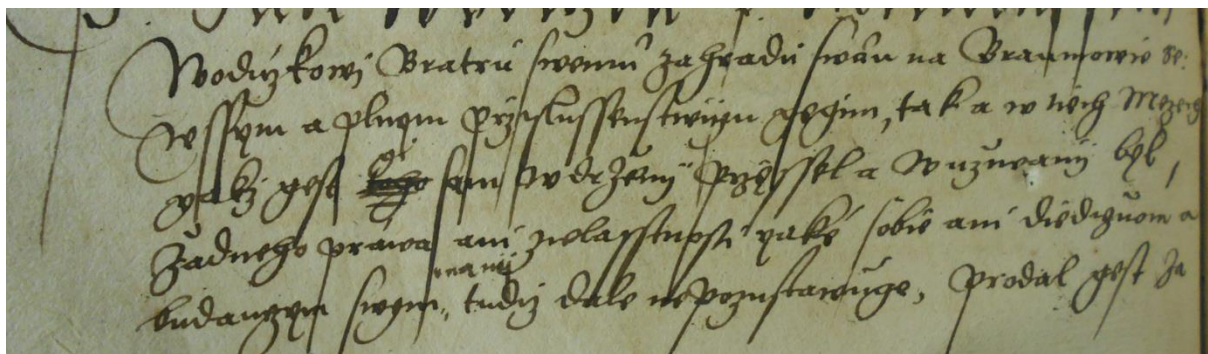 Wodiczkowj Bratrů swemů zahradu swau na Branmowie se
wssym a plnym przislussenstwijm geginm, tak a w tiech Mezech
yakz gest gi sam w drzenij przissel a w uzuwanij byl,
Zadneho práwa ani zwlasstnosti yaké sobie ani diediczuom a
budauczym swym, na nij tudiz dale nepozustawuge, Prodal gest za